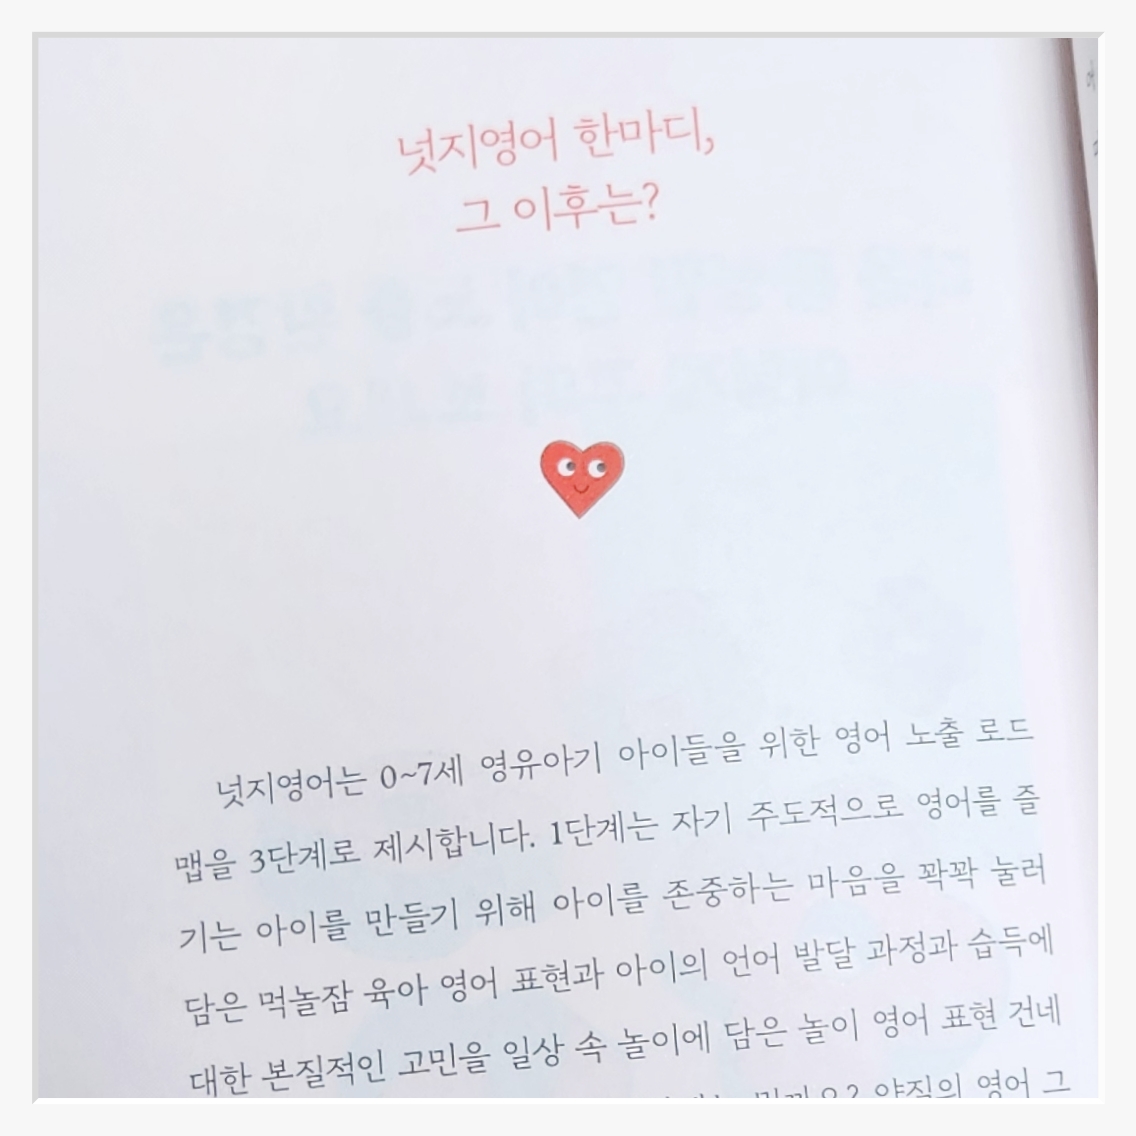 넛지영어 한마디,
그 이후는?
넛지영어는 0~7세 영유아기 아이들을 위한 영어 노출 로드
맵을 3단계로 제시합니다. 1단계는 자기 주도적으로 영어를 즐
기는 아이를 만들기 위해 아이를 존중하는 마음을 꽉꽉 눌러
담은 먹놀잠 육아 영어 표현과 아이의 언어 발달 과정과 습득에
대한 본질적인 고민을 일상 속 놀이에 담은 놀이 영어 표현 건네
양질의 영어 그